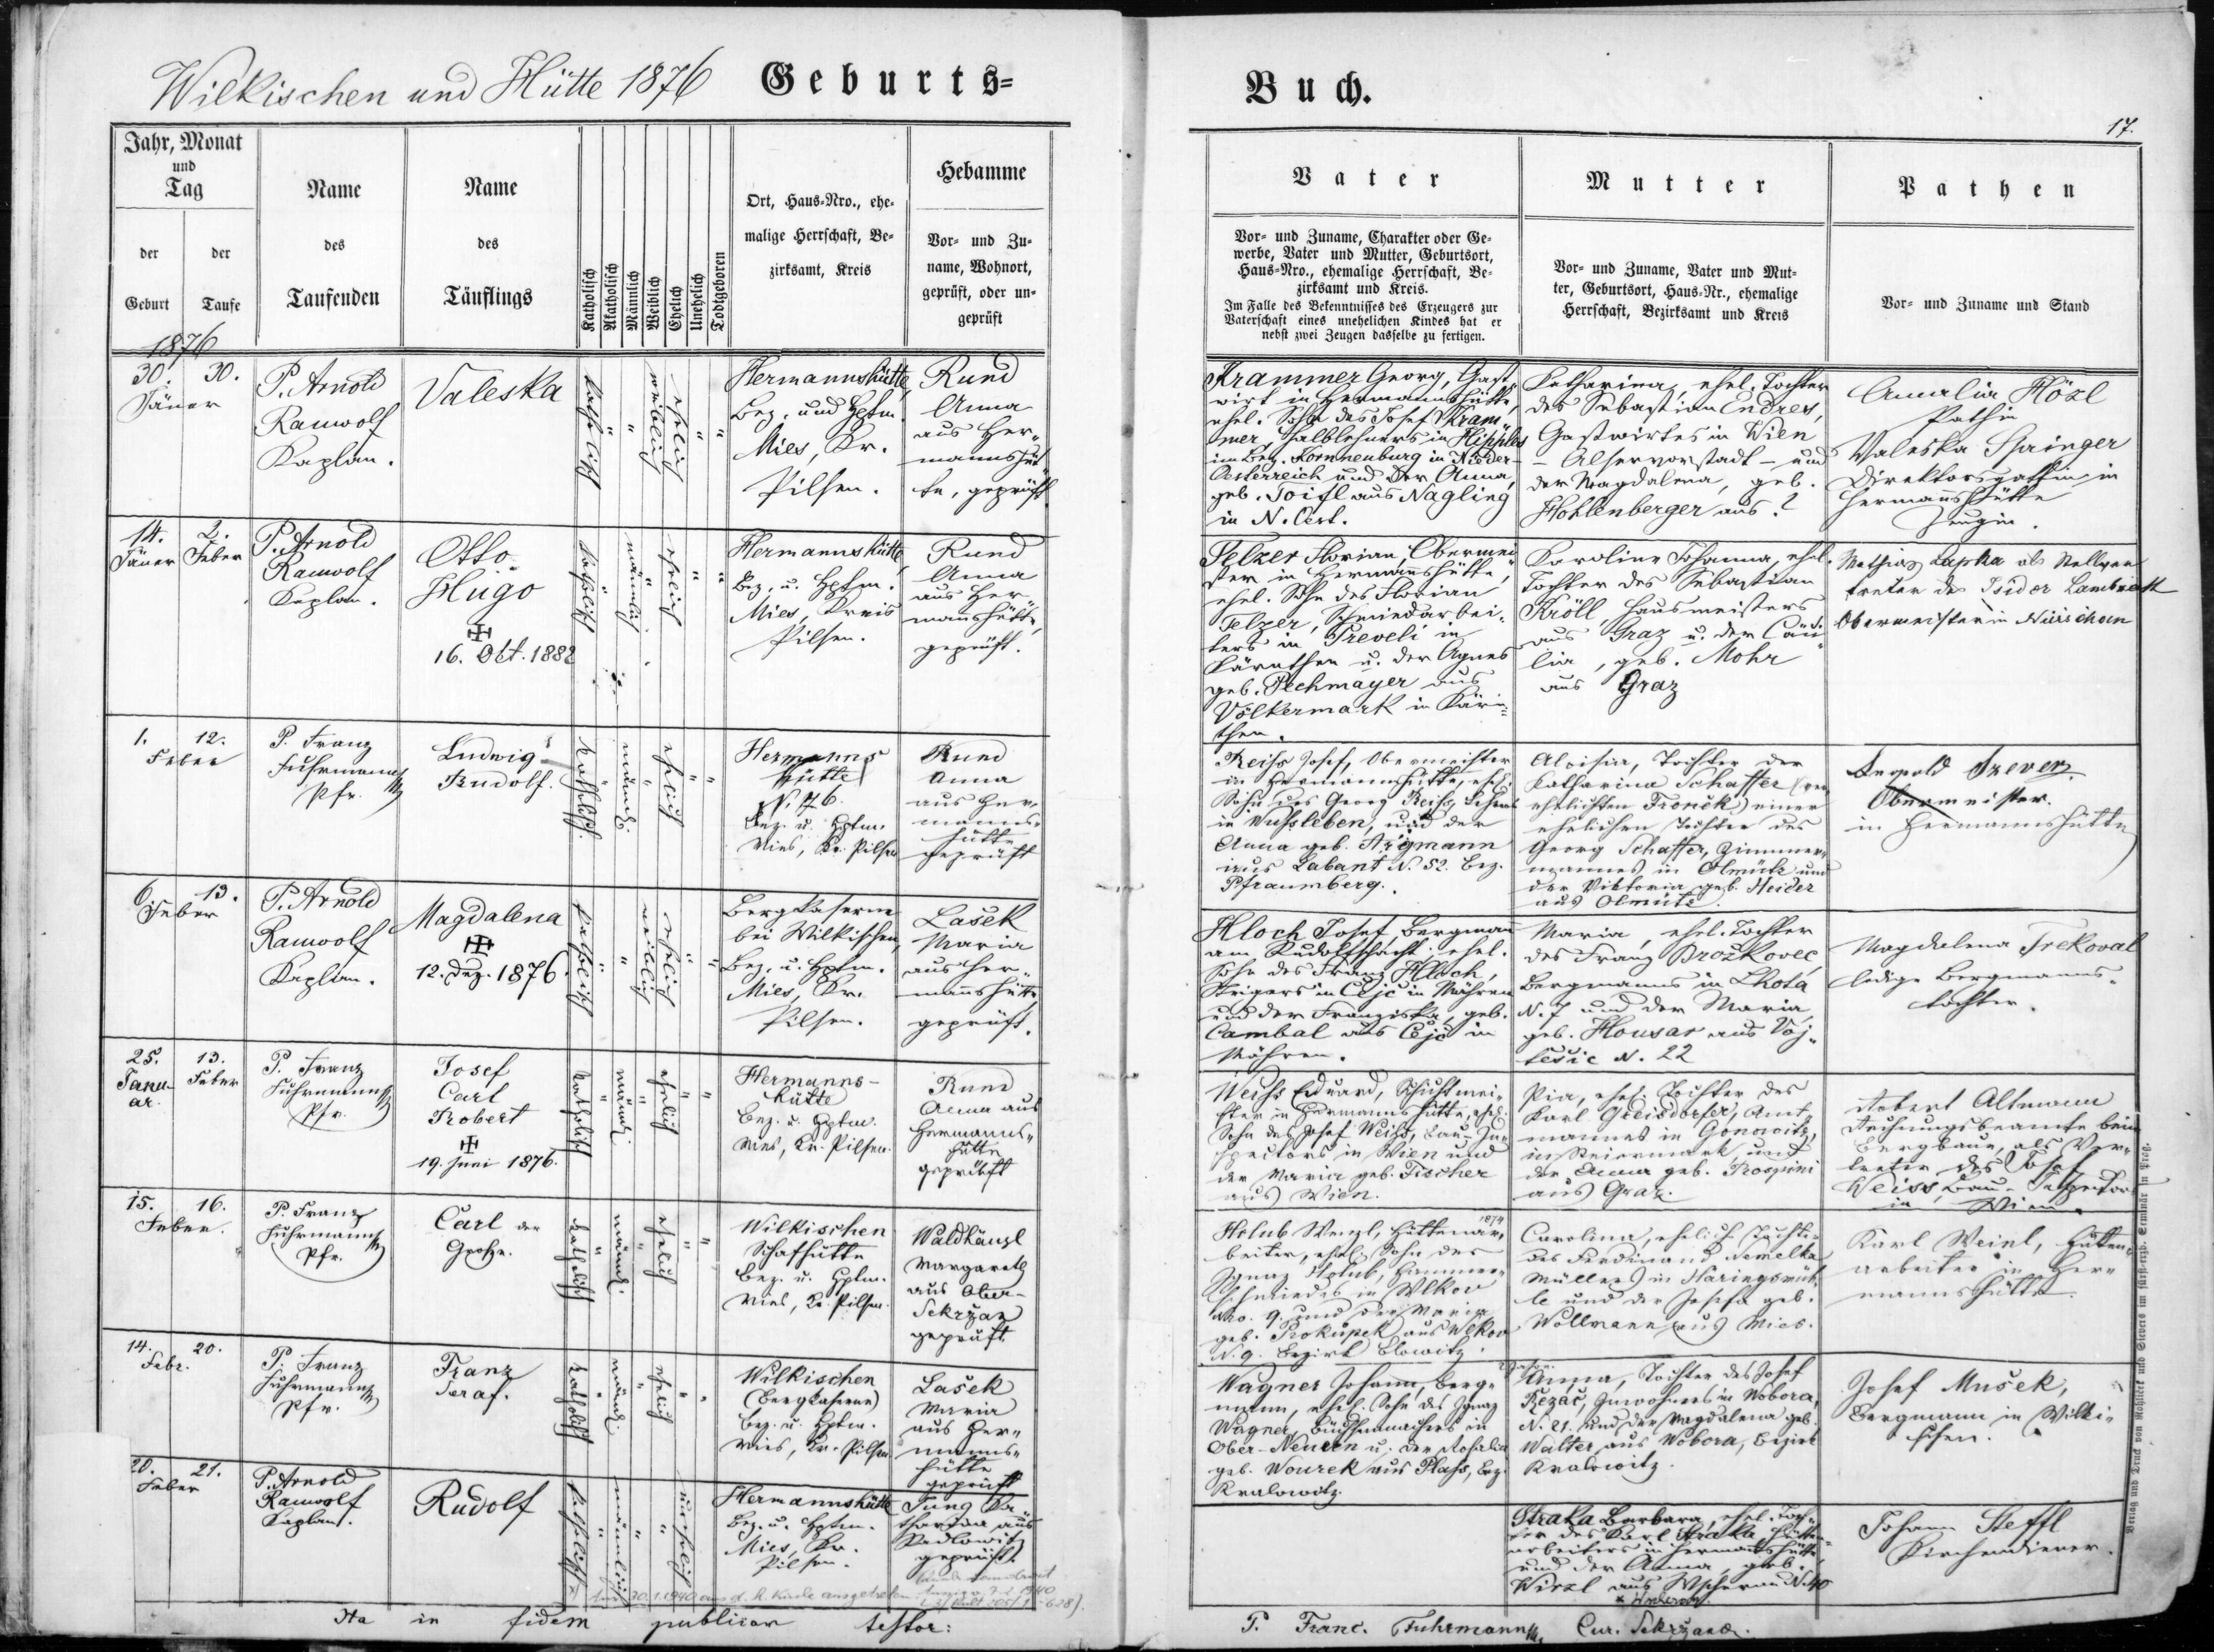 Wilkischen und Hütte 1876 Geburts=
Buch.
17.
Jahr, Monat
und
Tag
der
Geburt
der
Taufe
Name
des
Taufenden
Name
des
Täuflings
Katholisch
Akatholisch
Männlich
Weiblich
Ehelich
Unehelich
Todtgeboren
Ort, Haus-Nro., ehe-
malige Herrschaft, Be-
zirksamt, Kreis
Hebamme
Vor- und Zu-
name, Wohnort,
geprüft, oder un-
geprüft
Vater
Vor- und Zuname, Charakter oder Ge-
werbe, Vater und Mutter, Geburtsort,
Haus-Nro., ehemalige Herrschaft, Be-
zirksamt und Kreis.
Im Falle des Bekenntnisses des Erzeugers zur
Vaterschaft eines unehelichen Kindes hat er
nebst zwei Zeugen dasselbe zu fertigen.
Mutter
Vor- und Zuname, Vater und Mut-
ter, Geburtsort, Haus-Nr., ehemalige
Herrschaft, Bezirksamt und Kreis
Pathen
Vor- und Zuname und Stand
1876
30. 30.
Jäner
P. Arnold
Ramwolf
Kaplan.
Valeska
katholisch
weiblich
ehelich
Hermannshütte,
Bez. und Hptm.
Mies, Kr.
Pilsen.
Rund
Anna
aus Her-
mannshüt
te, geprüft.
Krammer Georg, Gast-
wirt in Hermannshütte,
ehel. Sohn des Josef Kram-
mer, Halblehners in Hipples
im Bez. Kornneuburg in Nieder-
Oesterreich und der Anna,
geb. Toifl aus Nagling
in N. Oest.
Katharina, ehel. Tochter
des Sebastian Endres,
Gastwirtes in Wien
- Alservorstadt - und
der Magdalena, geb.
Hohlenberger aus ?
Amalia Hözl
Pathin
Valeska Springer
Direktorsgattin in
Hermannshütte
Zeugin.
14. 2.
Jäner Feber
P. Arnold
Ramwolf
Kaplan.
Otto
Hugo
16. Okt. 1882
katholisch
männlich
ehelich
Hermannshütte,
Bez. u. Hptm.
Mies, Kreis
Pilsen.
Rund
Anna
aus Her-
mannshütte,
geprüft.
Telzer Florian, Obermei-
ster in Hermannshütte,
ehel. Sohn des Florian
Telzer, Schmiedarbei-
ters in Preveli in
Kärnthen u. der Agnes
geb. Pechmayer aus
Völkermark in Kärn-
then.
Karoline Johanna, ehel.
Tochter des Sebastian
Kröll, Hausmeisters
aus Graz u. der Cäci-
lia, geb. Mohr
aus Graz
Mathias Lapka als Stellver-
treter des Isidor
Obermeister in Nürschan
1. 12.
Feber
P. Franz
Fuhrmann
Pfr.
Ludwig
Rudolf.
katholisch
männl.
ehelich
Hermanns
hütte
N. 76.
Bez. u. Hptm.
Mies, Kr. Pilsen
Rund
Anna
aus Her-
manns-
hütte
geprüft
Reiss Josef, Obermeister
in Hermannshütte, ehel.
Sohn des Georg Reiss,
in Wussleben, und der
Anna geb.
aus Labant N. 52. Bez.
Pfraumberg.
Aloisia, Tochter der
Katharina Schaffer (ver-
ehelichten Fronek) einer
ehelichen Tochter des
Georg Schaffer, Zimmer-
mannes in Olmütz und
der Viktoria geb. Heider
aus Olmütz.
Leopold
Obermeister.
in Hermannshütte
6. 13.
Feber
P. Arnold
Ramwolf
Kaplan.
Magdalena
12. Dez. 1876.
katholisch
weiblich
ehelich
Bergkaserne
bei Wilkischen,
Bez. u. Hptm.
Mies, Kr.
Pilsen.
Lašek
Maria
aus Her-
mannshütte,
geprüft.
Hloch Josef Bergmann
am Rudolfschacht, ehel.
Sohn des Franz Hloch,
Steigers in Čejč in Mähren
und der Franziska, geb.
Cambal aus Čejč in
Mähren.
Maria, ehel. Tochter
des Franz Brožkovec
Bergmanns in Lhota
N. 7 und der Maria,
geb. Housar aus Voj-
tešic N. 22
Magdalena Trekoval
ledige Bergmanns-
tochter.
25. 13.
Janu- Feber
ar.
P. Franz
Fuhrmann
Pfr.
Josef
Carl
Robert
19. Juni 1876.
katholisch
männl.
ehelich
Hermanns-
hütte
Bez. u. Hptm.
Mies, Kr. Pilsen.
Rund
Anna aus
Hermanns-
hütte
geprüft
Weiss Eduard, Schichtmei-
ster in Hermannshütte, ehel.
Sohn des Josef Weiss, Bau-In-
spectors in Wien und
der Maria geb. Fischer
aus Wien.
Pia, ehel. Tochter des
Karl Greisdorfer, Amt-
mannes in Gonowitz,
in Steiermark, und
der Anna geb. Prospini
aus Graz.
Robert Altmann
Rechnungsbeamte beim
Bergbaue, als Ver-
treter des Josef
Weiss, Bau-Inspektors
in Wien.
15. 16.
Feber.
P. Franz
Fuhrmann
Pfr.
Carl der
Große.
katholisch
männl.
ehelich
Wilkischen
Schafhütte
Bez. u. Hptm.
Mies, Kr. Pilsen.
Waldhänzl
Margareth
aus Ober-
Sekržan
geprüft.
Holub Wenzl, Hüttenar-
beiter, ehel. Sohn des
Ignaz Holub, Hammer-
schmiedes in Wlkov
Nro. 9. und der Maria
geb. Prokupek aus Wlkov
N. 9. Bezirk Blowitz.
Carolina, eheliche Tochter
des Ferdinand Nemelka
Müllers in Haringsmüh-
le und der Josefa geb.
Wollmann aus Mies.
Karl Weinl, Hütten-
arbeiter in Her-
mannshütte.
14. 20.
Febr.
P. Franz
Fuhrmann
Pfr.
Franz
Seraf.
katholisch
männl.
ehelich
Wilkischen
(Bergkaserne)
Bez. u. Hptm.
Mies, Kr. Pilsen
Lašek
Maria
aus Her-
manns-
hütte
geprüft
Wagner Johann, Berg-
mann, ehel. Sohn des Ignaz
Wagner, Büchsenmachers in
Ober-Neuern u. der Rosalia
geb. Wourek aus Plass, Bez.
Kralowitz.
Anna, Tochter des Josef
Řezáč, Inwohners in Wobora,
N. 21. und der Magdalena geb.
Walter, aus Wobora, Bezirk
Kralowitz.
Josef Mušek,
Bergmann in Wilki-
schen.
20. 21.
Feber
P. Arnold
Ramwolf
Kaplan.
Rudolf
katholisch
männlich
unehelich
Hermannshütte
Bez. u. Hptm.
Mies, Kr.
Pilsen.
Jung Ka-
tharina aus
Radlowitz
geprüft.
30.1.1940 aus d. k. Kirche ausgetreten
Straka Barbara, ehel. Toch-
ter des Karl Straka, Hütten-
arbeiters in Hermannshütte
und der Anna, geb.
Wirzl aus Wscherau N. 40
Johann Steffl
Kirchendiener.
Ita in fidem publicam testor:
P. Franc. Fuhrmann, Cur. Sekržan.
Verlag und Druck von Rohliček und Sievers im fürst-erzb. Seminar in Prag.